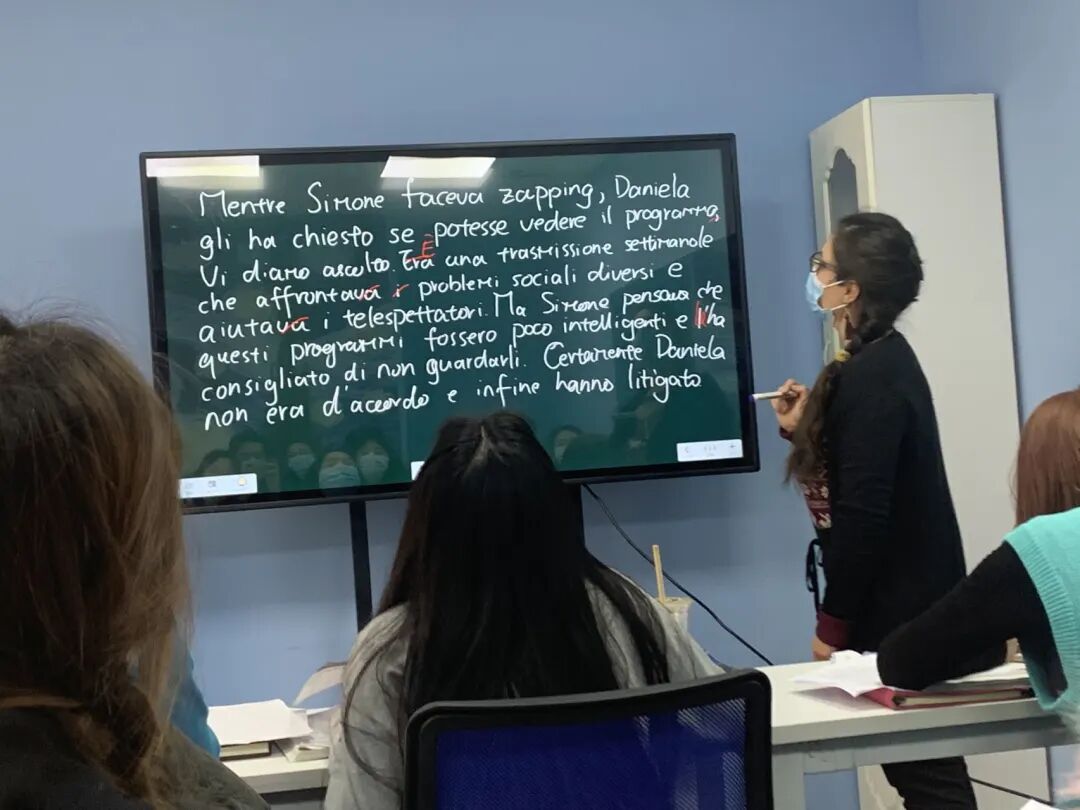 Mentre Simone faceva zapping, Daniela
gli ha chiesto se potesse vedere il programma,
È
Vi diamo ascolto. Era una trasmissione settimanale
che affrontava i problemi sociali diversi e
aiutava i telespettatori. Ma Simone pensava che
questi programmi fossero poco intelligenti e l'ha
consigliato di non guardarli. Certamente Daniela
non era d'accordo e infine hanno litigato